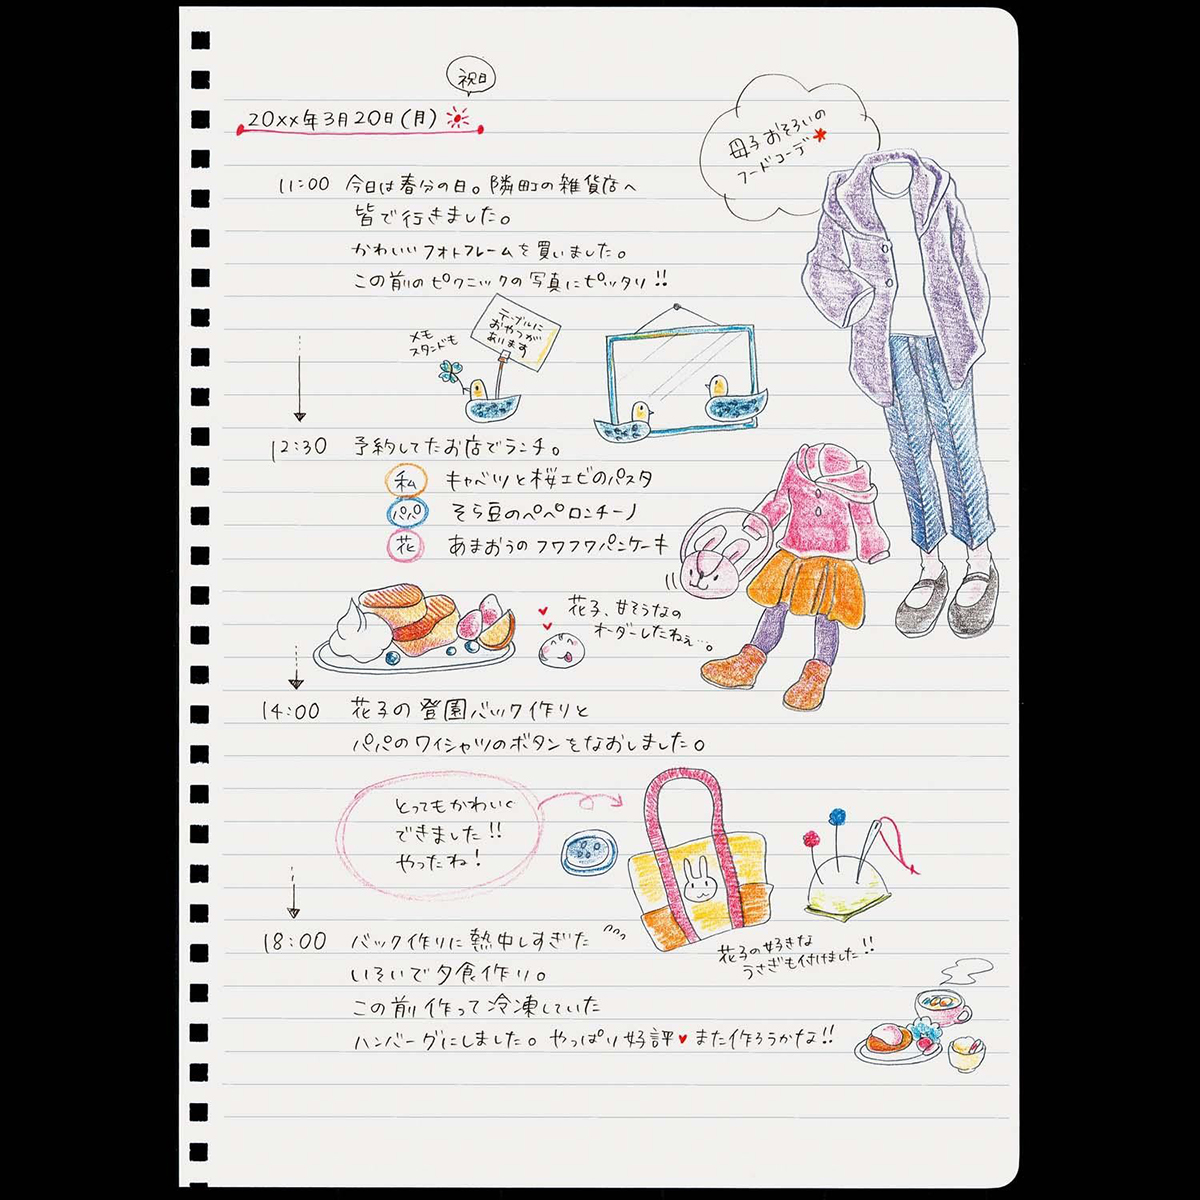 祝日
20xx年3月20日(月)
母子おそろいの
フードコーデ*
11:00 今日は春分の日。隣町の雑貨店へ
皆で行きました。
かわいいフォトフレームを買いました。
この前のピクニックの写真にピッタリ!!
メモ
スタンドも
テーブルに
おやつが
あります
12:30 予約してたお店でランチ。
私 キャベツと桜エビのパスタ
パパ そら豆のペペロンチーノ
花 あまおうのフワフワパンケーキ
花子、甘そうなの
オーダーしたねぇ…。
14:00 花子の登園バック作りと
パパのワイシャツのボタンをなおしました。
とってもかわいく
できました!!
やったね!
18:00 バック作りに熱中しすぎた
いそいで夕食作り。
この前作って冷凍していた
ハンバーグにしました。やっぱり好評♥また作ろうかな!!
花子の好きな
うさぎも付けました!!